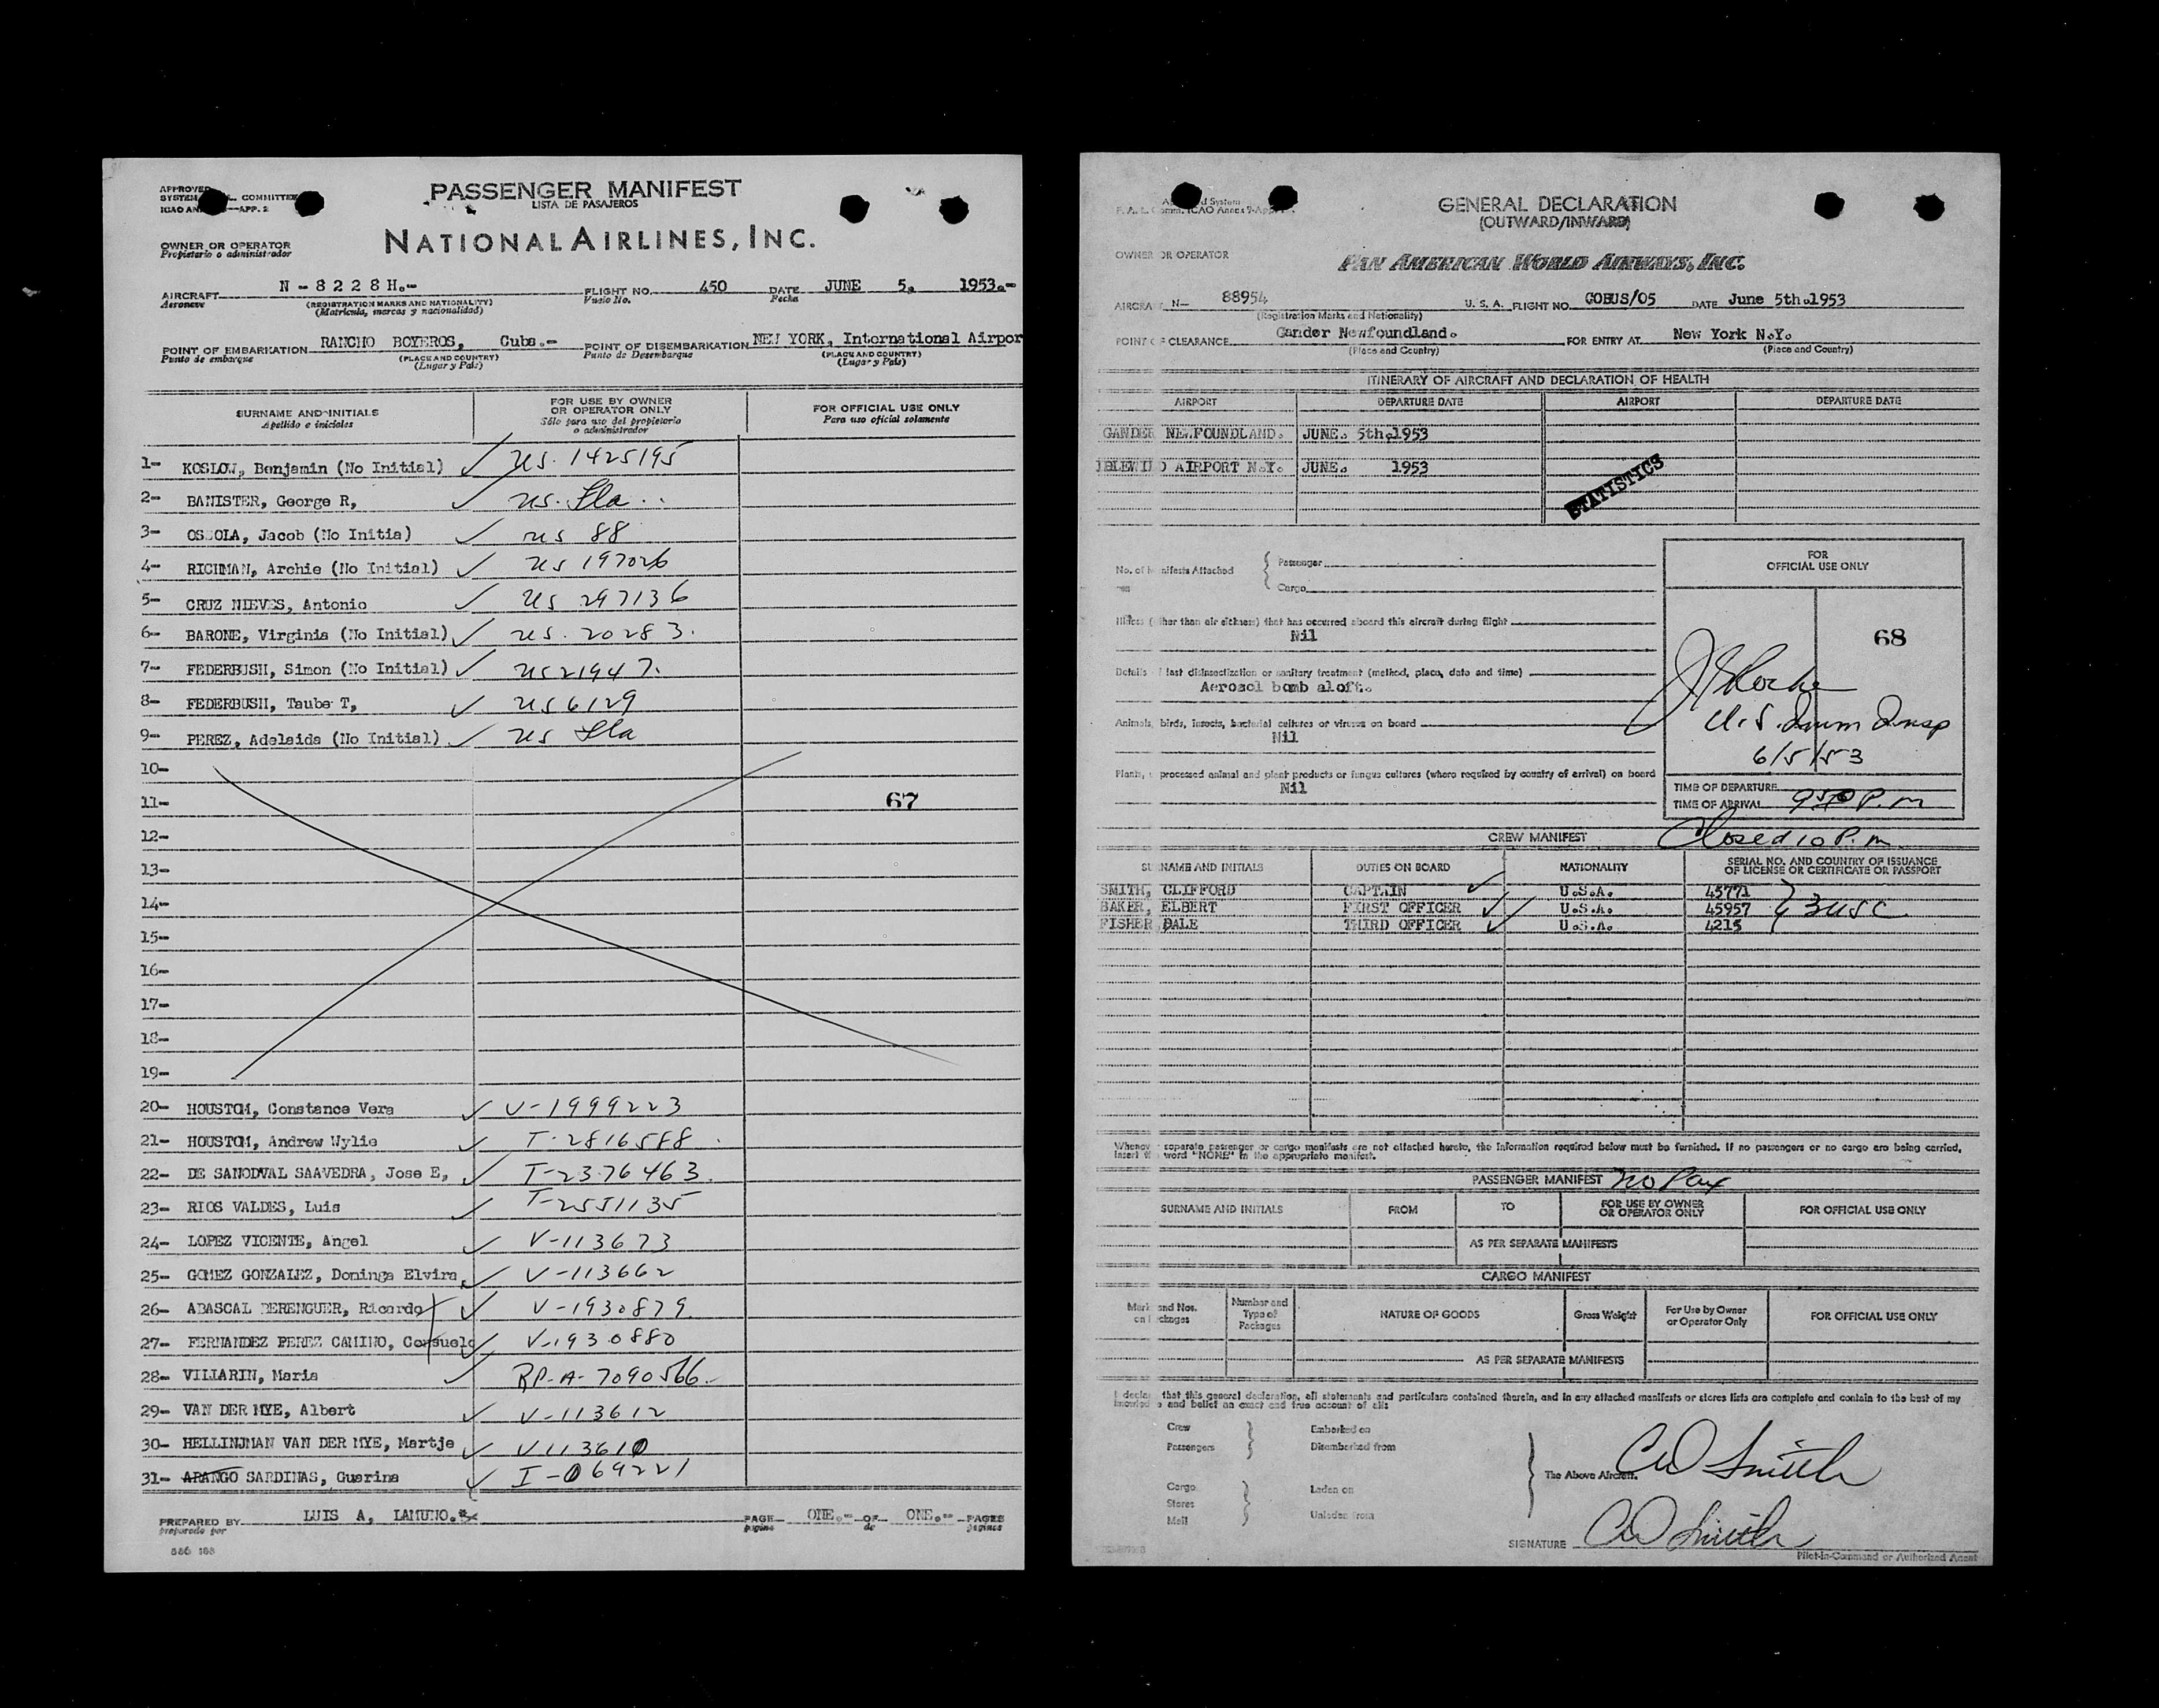 PASSENGER MANIFEST
LISTA DE PASAJEROS
NATIONAL AIRLINES, INC.
OWNER OR OPERATOR
Propietario o administrador
AIRCRAFT N-8228H.- FLIGHT NO. 450 DATE JUNE 5. 1953.-
Aeronave (REGISTRATION MARKS AND NATIONALITY) Vuelo No. Fecha
(Matricula, marcas y nacionalidad)
POINT OF EMBARKATION RANCHO BOYEROS, Cuba.- POINT OF DISEMBARKATION NEW YORK, International Airpor
Punto de embarque (PLACE AND COUNTRY) Punto de Desembarque (PLACE AND COUNTRY)
(Lugar y Pais) (Lugar y Pais)
SURNAME AND INITIALS FOR USE BY OWNER OR OPERATOR ONLY FOR OFFICIAL USE ONLY
Apellido e iniciales Sólo para uso del propietario o administrador Para uso oficial solamente
1- KOSLOW, Benjamin (No Initial) ✓ US. 1425195
2- BANISTER, George R, ✓ US. Fla..
3- OSSOLA, Jacob (No Initia) ✓ US 88
4- RICHMAN, Archie (No Initial) ✓ US 197026
5- CRUZ NIEVES, Antonio ✓ US 297136
6- BARONE, Virginia (No Initial) ✓ US. 20283.
7- FEDERBUSH, Simon (No Initial) ✓ US 21947.
8- FEDERBUSH, Taube T, ✓ US 6129
9- PEREZ, Adelaida (No Initial) ✓ US Fla
10-
11- 67
12-
13-
14-
15-
16-
17-
18-
19-
20- HOUSTOM, Constance Vera ✓ V-1999223
21- HOUSTOM, Andrew Wylie ✓ T-2816588.
22- DE SANODVAL SAAVEDRA, Jose E, ✓ T-2376463.
23- RIOS VALDES, Luis ✓ T-2551135
24- LOPEZ VICENTE, Angel ✓ V-113673
25- GOMEZ GONZALEZ, Dominga Elvira, ✓ V-113662
26- ABASCAL BERENGUER, Ricardo ✓ V-1930879.
27- FERNANDEZ PEREZ CAMINO, Consuelo ✓ V-1930880
28- VILLARIN, Maria ✓ RP-A-7090566.
29- VAN DER MYE, Albert ✓ V-113612
30- HELLINJMAN VAN DER MYE, Martje ✓ V 113610
31- ARANGO SARDINAS, Guarina ✓ I-069221
PREPARED BY LUIS A, LAMUNO. PAGE ONE.- OF ONE.- PAGES
preparado por pagina de páginas
GENERAL DECLARATION
(OUTWARD/INWARD)
OWNER OR OPERATOR PAN AMERICAN WORLD AIRWAYS, INC.
AIRCRAFT N- 88954 U. S. A. FLIGHT NO. GOBUS/05 DATE June 5th.1953
(Registration Marks and Nationality)
POINT OF CLEARANCE Gander Newfoundland. FOR ENTRY AT New York N.Y.
(Place and Country) (Place and Country)
ITINERARY OF AIRCRAFT AND DECLARATION OF HEALTH
AIRPORT DEPARTURE DATE AIRPORT DEPARTURE DATE
GANDER NEWFOUNDLAND. JUNE. 5th.1953
AIRPORT N.Y. JUNE. 1953
STATISTICS
No. of Manifests Attached Passenger
Cargo
FOR
OFFICIAL USE ONLY
68
Illness (other than air sickness) that has occurred aboard this aircraft during flight
Nil
Details of last disinsectization or sanitary treatment (method, place, date and time)
Aerosol bomb aloft.
Animals, birds, insects, bacterial cultures or viruses on board
Nil
Plants, processed animal and plant products or fungus cultures (where required by country of arrival) on board
Nil
U.S. Imm Insp
6/5/53
TIME OF DEPARTURE
TIME OF ARRIVAL 950 P.m
CREW MANIFEST Closed 10 P.m.
SURNAME AND INITIALS DUTIES ON BOARD NATIONALITY SERIAL NO. AND COUNTRY OF ISSUANCE OF LICENSE OR CERTIFICATE OR PASSPORT
SMITH, CLIFFORD CAPTAIN ✓ U.S.A. 45771
BAKER, ELBERT FIRST OFFICER ✓ U.S.A. 45957 } 3 USC
FISHER DALE THIRD OFFICER ✓ U.S.A. 4215
Whenever separate passenger or cargo manifests are not attached hereto, the information required below must be furnished. If no passengers or no cargo are being carried,
insert the word "NONE" in the appropriate manifest.
PASSENGER MANIFEST No Pax
SURNAME AND INITIALS FROM TO FOR USE BY OWNER OR OPERATOR ONLY FOR OFFICIAL USE ONLY
AS PER SEPARATE MANIFESTS
CARGO MANIFEST
Marks and Nos. on Packages Number and Type of Packages NATURE OF GOODS Gross Weight For Use by Owner or Operator Only FOR OFFICIAL USE ONLY
AS PER SEPARATE MANIFESTS
I declare that this general declaration, all statements and particulars contained therein, and in any attached manifests or stores lists are complete and contain to the best of my
knowledge and belief an exact and true account of all:
Crew Embarked on
Passengers Disembarked from
The Above Aircraft. CW Smith
Cargo Laden on
Stores
Mail Unladen from
SIGNATURE CW Smith
Pilot-in-Command or Authorized Agent